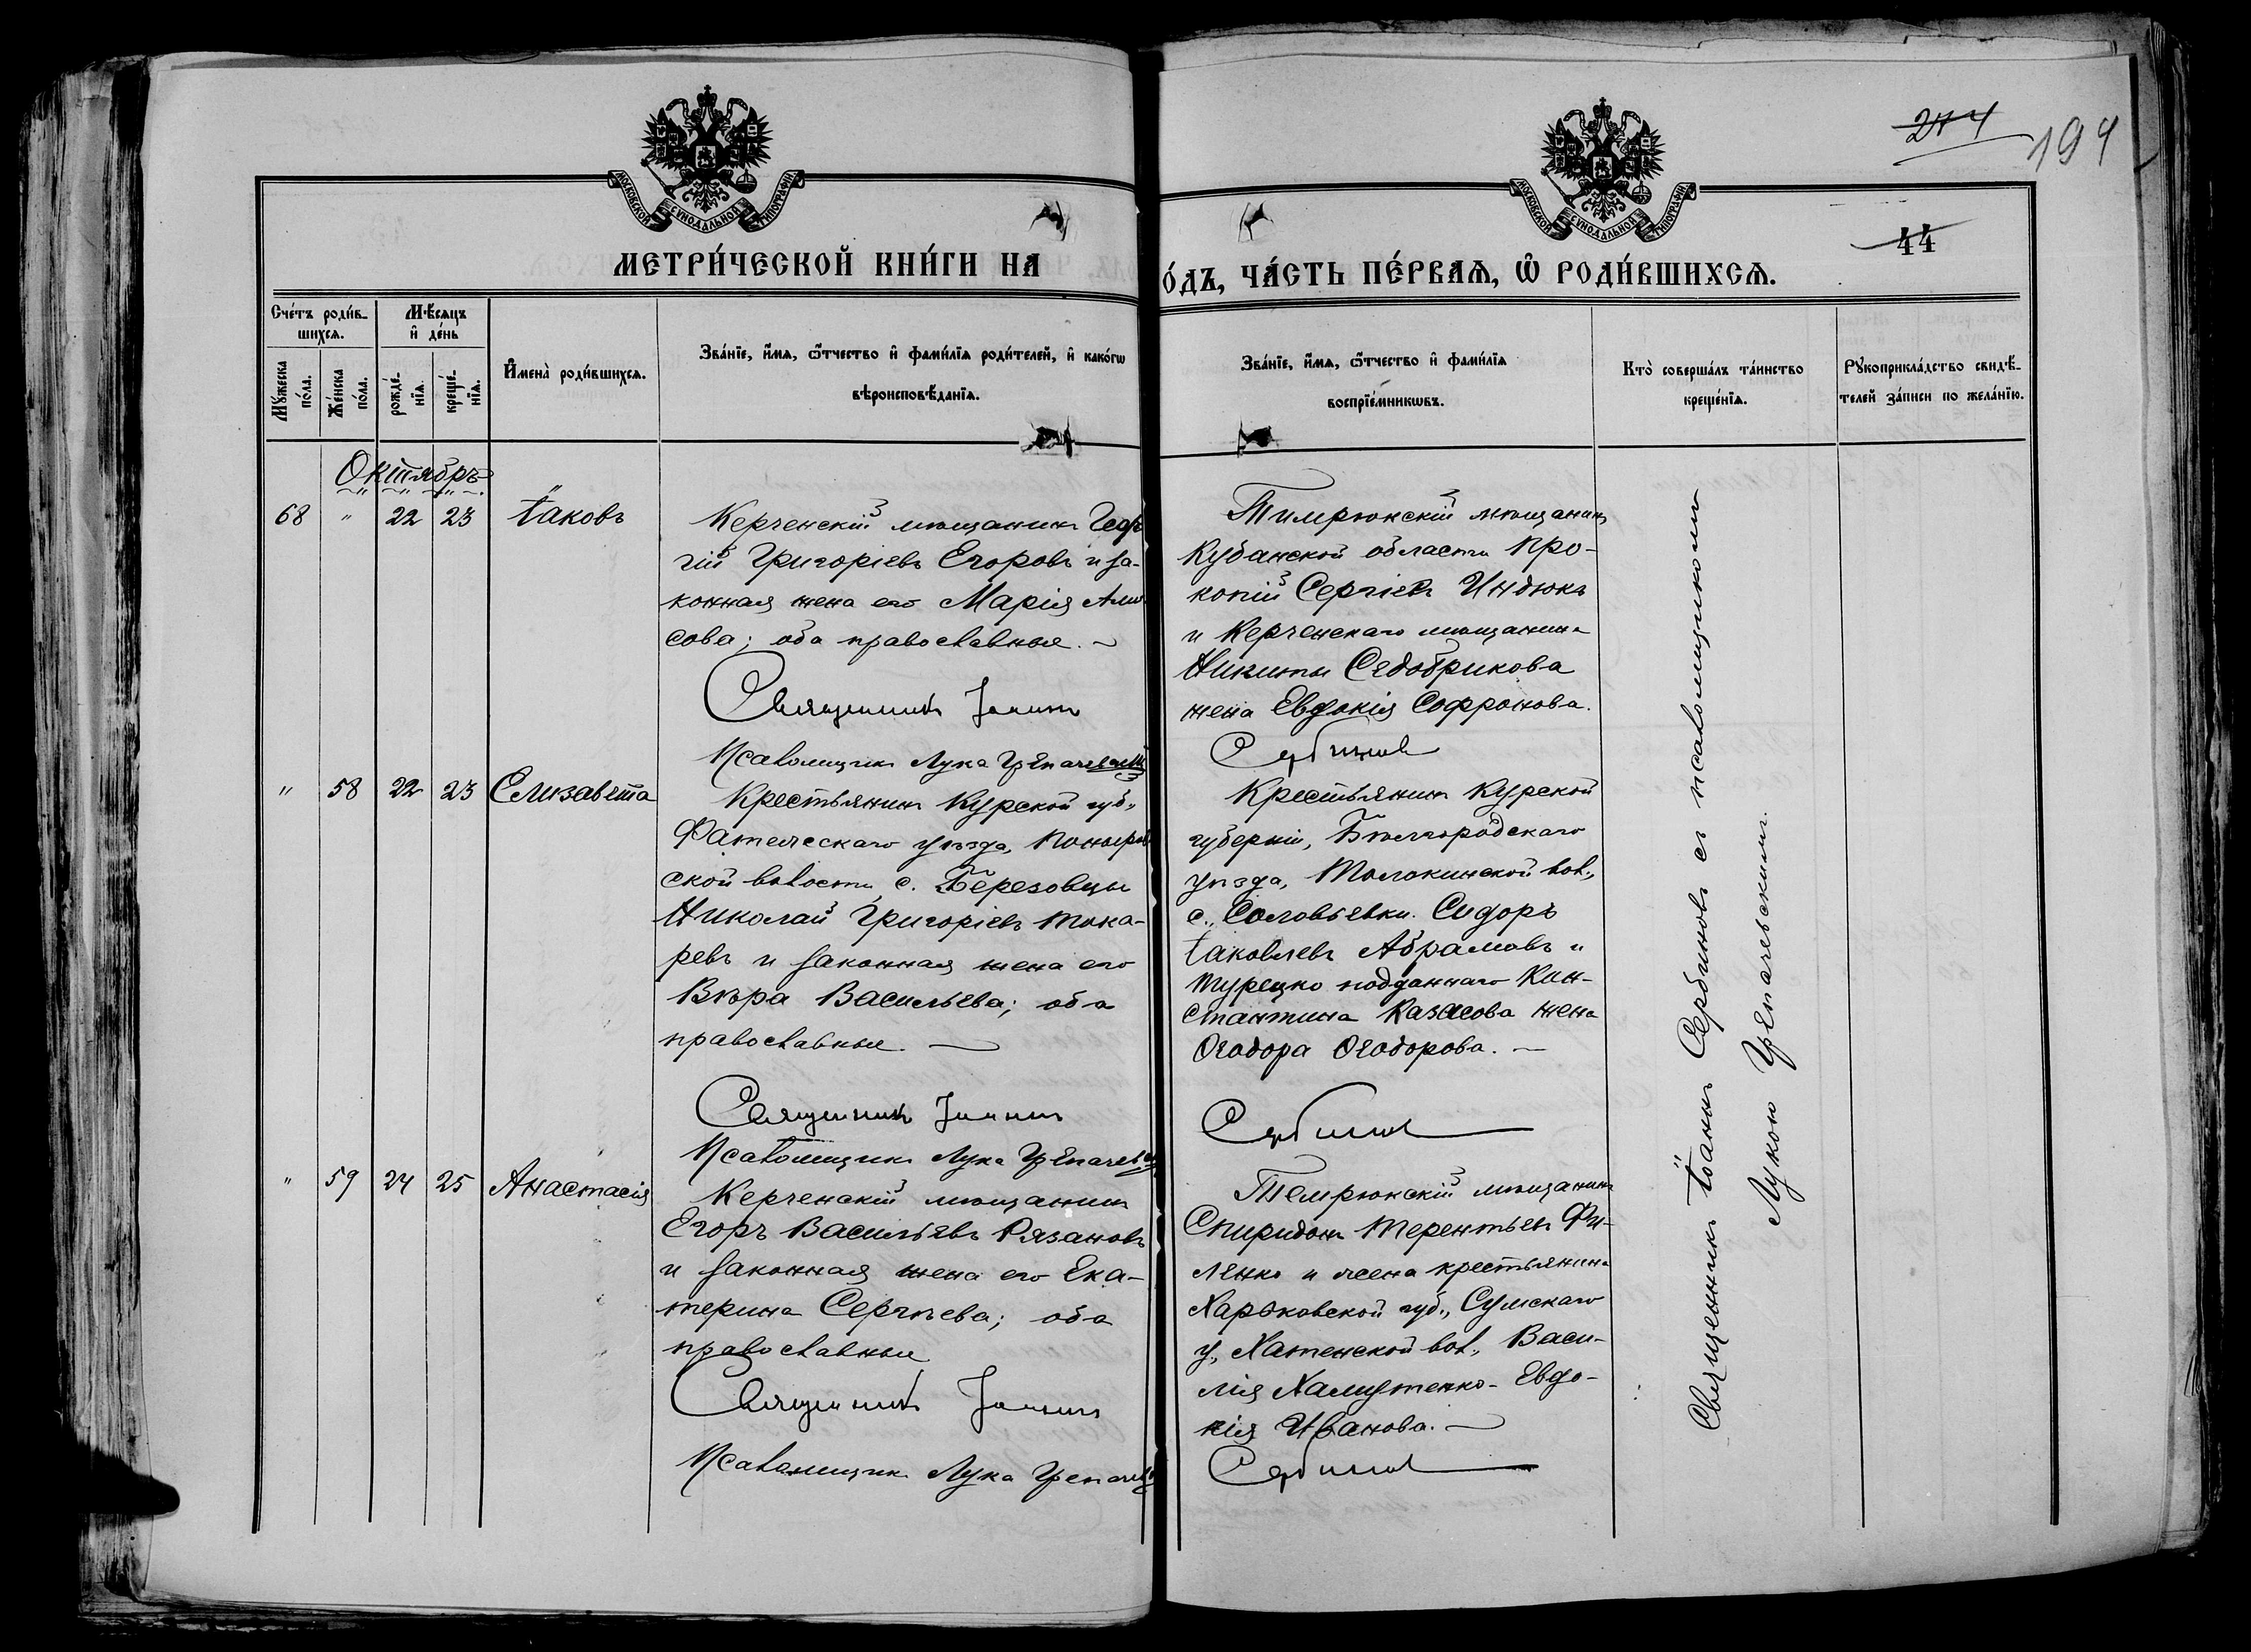 274
194
МОСКОВСКОЙ СУНОДАЛЬНОЙ ТИПОГРАФІИ
МОСКОВСКОЙ СУНОДАЛЬНОЙ ТИПОГРАФІИ
44
МЕТРИ́ЧЕСКОЙ КНИ́ГИ НА
О́ДЪ, ЧА́СТЬ ПЕ́РВАѦ, Ѡ҆ РОДИ́ВШИХСѦ.
Сче́тъ роди́в-
шихсѧ.
Мꙋ́жеска по́ла.
Же́нска по́ла.
Мѣ́сѧцъ
и҆ де́нь
рожде́-
нїѧ.
креще́-
нїѧ.
И҆мена̀ роди́вшихсѧ.
Зва́нїе, и҆́мѧ, ѻ҆́тчество и҆ фами́лїѧ роди́телей, и҆ како́гѡ
вѣроисповѣ́данїѧ.
Зва́нїе, и҆́мѧ, ѻ҆́тчество и҆ фами́лїѧ
воспрїе́мникѡвъ.
Кто̀ соверша́лъ та́инство
креще́нїѧ.
Рꙋкоприкла́дство свидѣ́-
телей за́писи по жела́нїю.
Октябрь
68 " 22 23 Іаковъ
Керченскій мѣщанинъ Геор
гій Григоріевъ Егоровъ и за-
конная жена его Марія
сова; оба православные.
Священникъ Іоаннъ
Псаломщикъ Лука
Тимрюкскій мѣщанинъ
Кубанской области Про-
копій Сергіевъ Индюкъ
и Керченскаго мѣщанина
Никиты Седобрикова
жена Евдокія Софронова.
Сербиновъ
" 58 22 23 Елизавета
Крестьянинъ Курской губ.,
Фатежскаго уѣзда, Поныров
ской волости с. Березовцы
Николай Григоріевъ Тока-
ревъ и законная жена его
Вѣра Васильева; оба
православные.
Священникъ Іоаннъ
Псаломщикъ Лука
Крестьянинъ Курской
губерніи, Бѣлгородскаго
уѣзда, Толокинской вол.,
с. Соловьевки. Сидоръ
Іаковлевъ Абрамовъ и
турецко подданнаго Кон-
стантина Казасова жена
Ѳеодора Ѳеодорова.
Сербиновъ
" 59 24 25 Анастасія
Керченскій мѣщанинъ
Егоръ Васильевъ Рязановъ
и законная жена его Ека-
терина Сергѣева; оба
православные
Священникъ Іоаннъ
Псаломщикъ Лука
Темрюкскій мѣщанинъ
Спиридонъ Терентьевъ Фи-
ленко и жена крестьянина
Харьковской губ., Сумскаго
у., Хатенской вол., Васи-
лія Халиутенко - Евдо-
кія Иванова.
Сербиновъ
Священникъ Іоаннъ Сербиновъ съ псаломщикомъ
Лукою